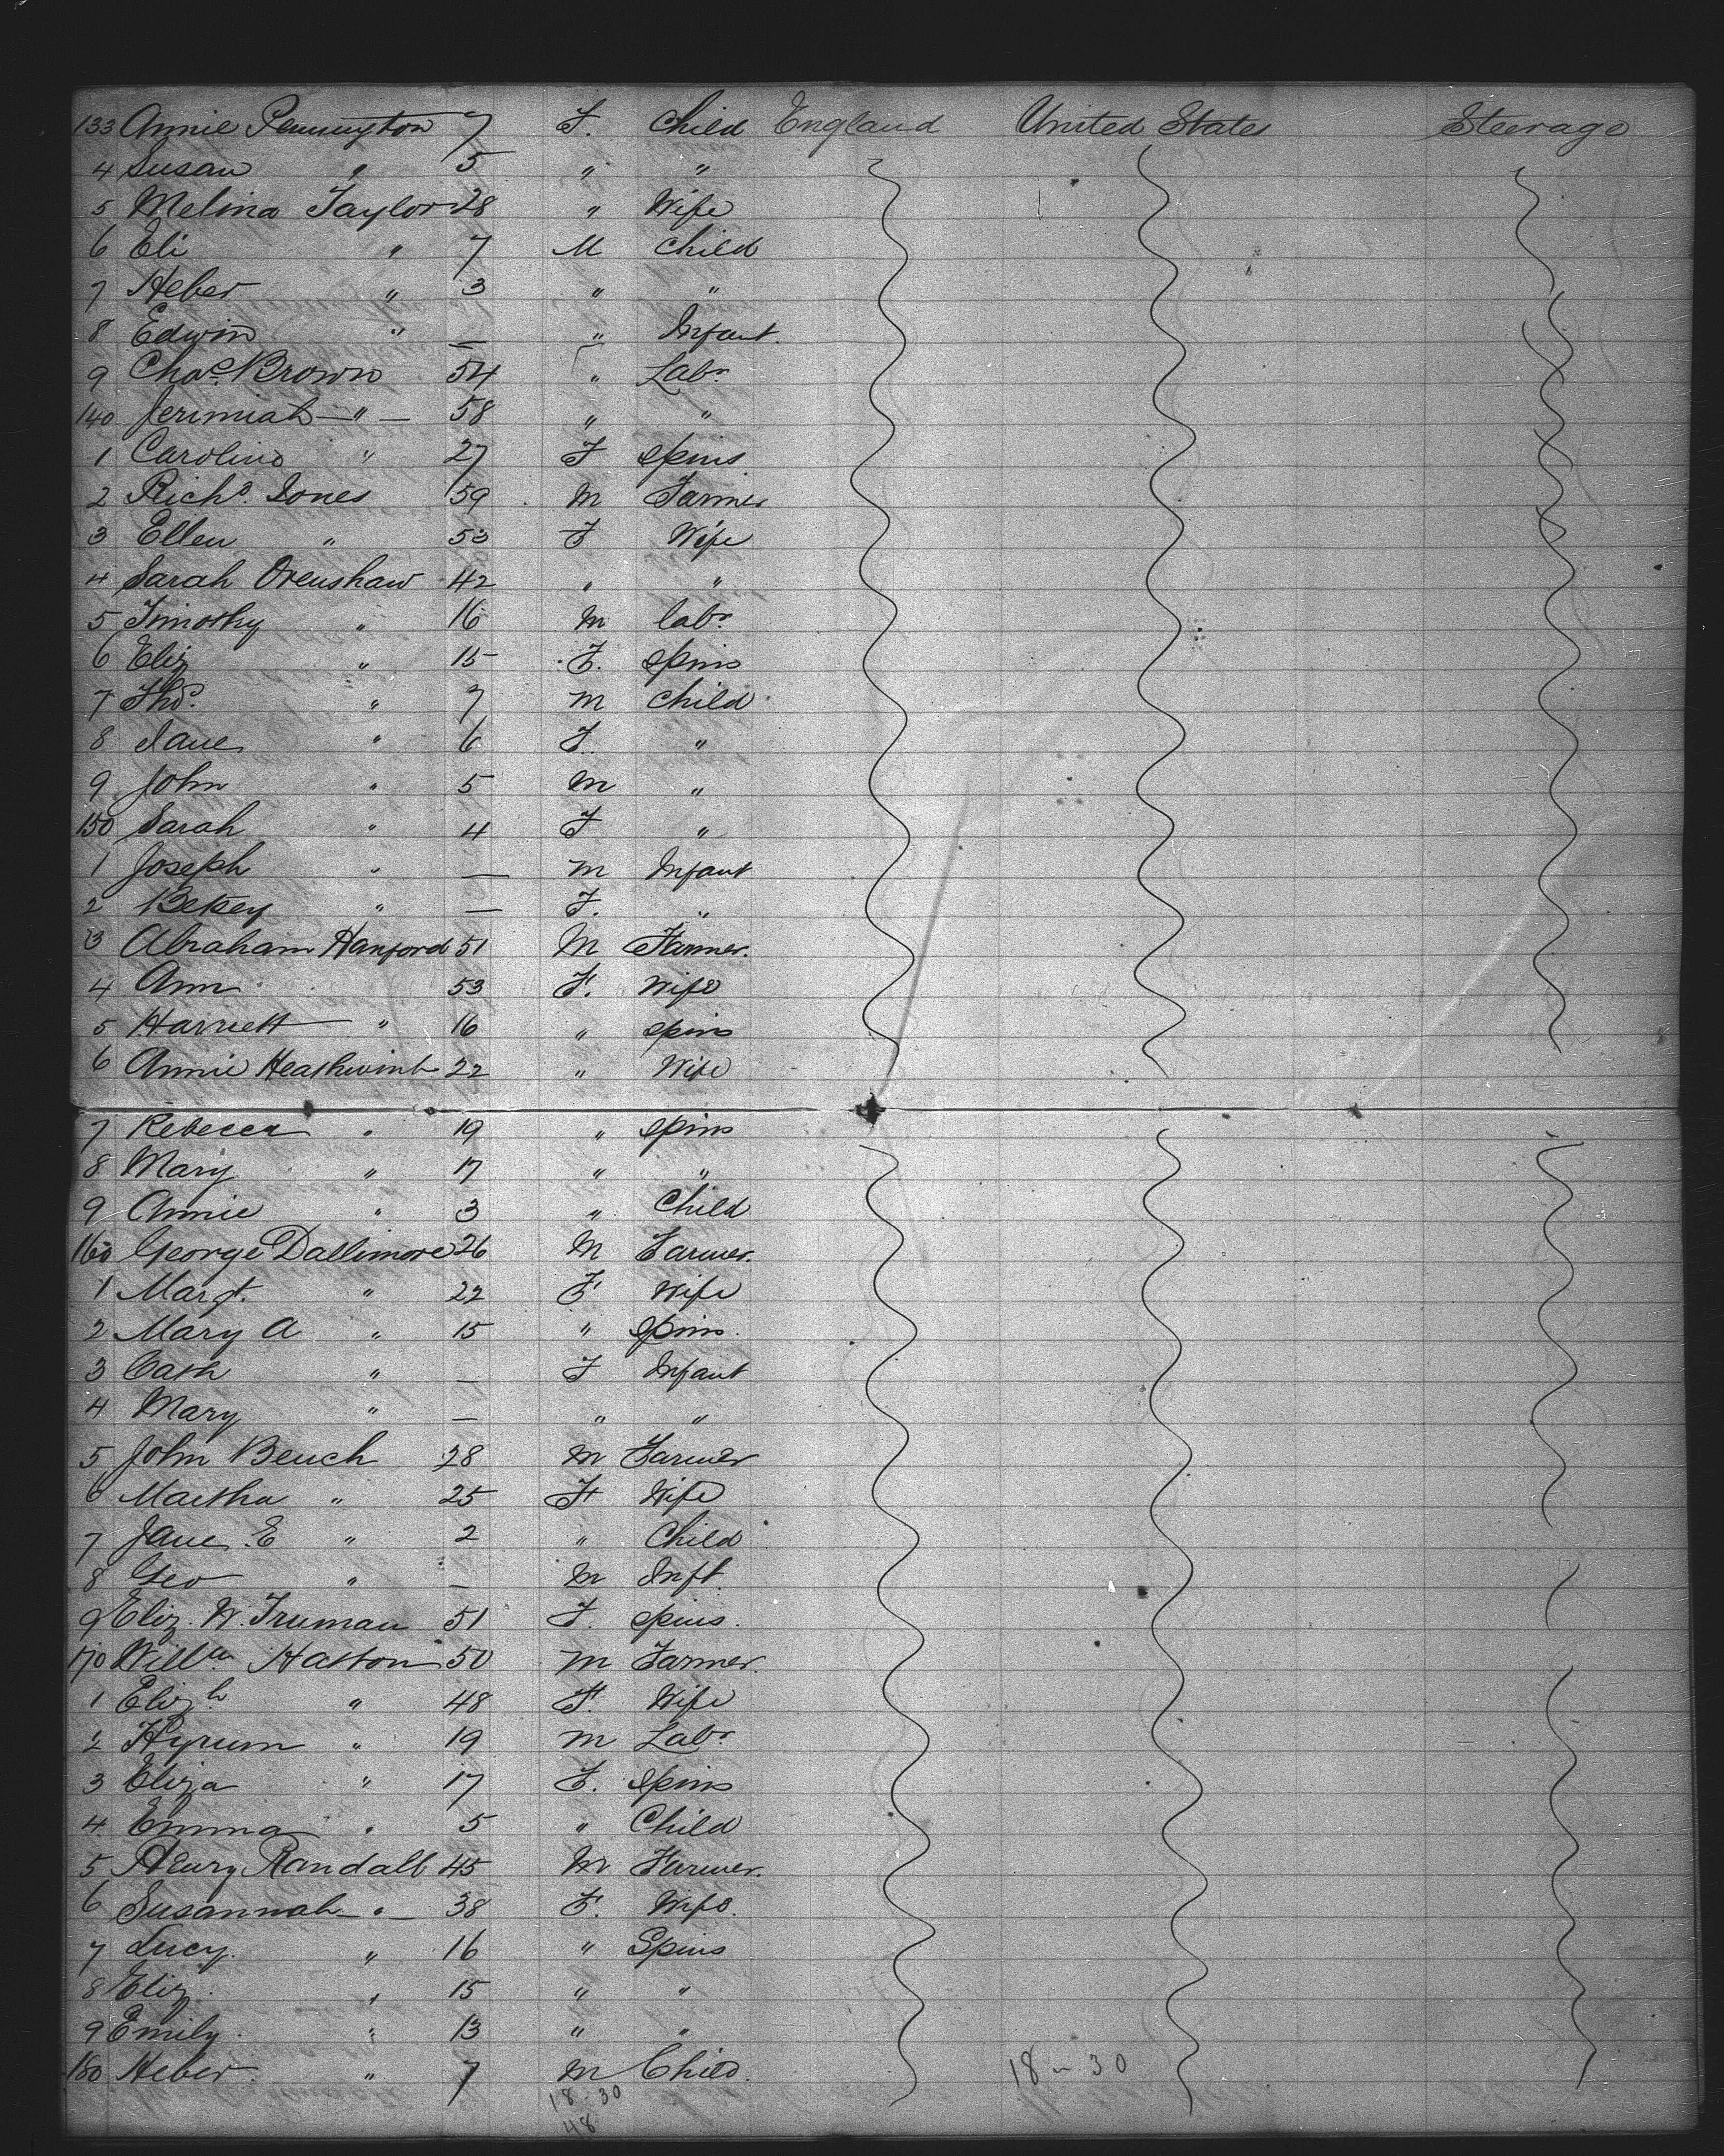 133 Annie Pennington 7 F. Child England United States Steerage
4 Susan " 5 " "
5 Melina Taylor 28 " Wife
6 Eli " 7 M Child
7 Heber " 3 " "
8 Edwin " — " Infant.
9 Chas. Brown 54 " Labr.
140 Jerimiah — " — 58 " "
1 Caroline " 27 F Spins
2 Richd. Jones 59 M Farmer
3 Ellen " 53 F Wife
4 Sarah Orenshaw 42 " "
5 Timothy " 16 M labr.
6 Eliz " 15 F. Spins
7 Thos. " 7 M Child
8 Jane " 6 F. "
9 John " 5 M "
150 Sarah " 4 F "
1 Joseph " — M Infant
2 Betsey " — F. "
3 Abraham Hanford 51 M Farmer.
4 Ann 53 F. Wife
5 Harriett " 16 " Spins
6 Annie 22 " Wife
7 Rebecca " 19 " Spins
8 Mary " 17 " "
9 Annie " 3 " Child
160 George Dallimore 26 M Farmer.
1 Margt. " 22 F Wife
2 Mary A " 15 " Spins.
3 Cath " — F Infant
4 Mary " — " "
5 John Bench 28 M Farmer
6 Martha " 25 F Wife
7 Jane E " 2 " Child
8 Geo " — M Inft.
9 Eliz. W. Truman 51 F. Spins.
170 Willm. Haston 50 M Farmer.
1 Elizh " 48 F. Wife
2 Hyrum " 19 M Labr.
3 Eliza " 17 F. Spins
4 Emma " 5 " Child
5 Henry Randall 45 M Farmer.
6 Susannah — " — 38 F. Wife.
7 Lucy. " 16 " Spins
8 Eliz. " 15 " "
9 Emily. " 13 " "
180 Heber " 7 M Child.
18-30 18-30
48